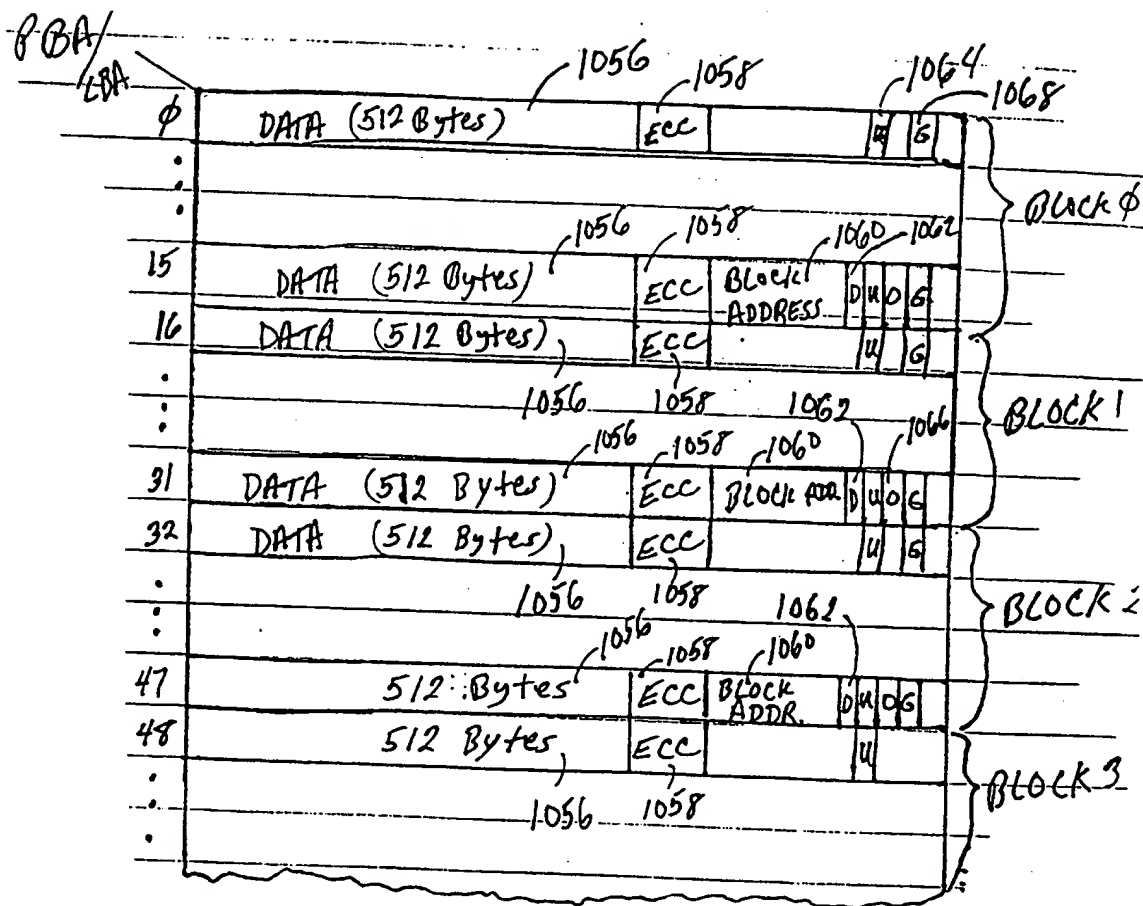 PBA/LBA
1056 1058 1064 1068
φ DATA (512 Bytes) ECC U G
BLOCK φ
1056 1058 1060 1062
15 DATA (512 Bytes) ECC BLOCK ADDRESS D U O G
16 DATA (512 Bytes) ECC U G
1056 1058 1062 1066
BLOCK 1
1056 1058 1060
31 DATA (512 Bytes) ECC BLOCK ADDR D U O G
32 DATA (512 Bytes) ECC U G
1056 1058 1062
BLOCK 2
1056 1058 1060
47 512 Bytes ECC BLOCK ADDR. D U O G
48 512 Bytes ECC U
BLOCK 3
1056 1058